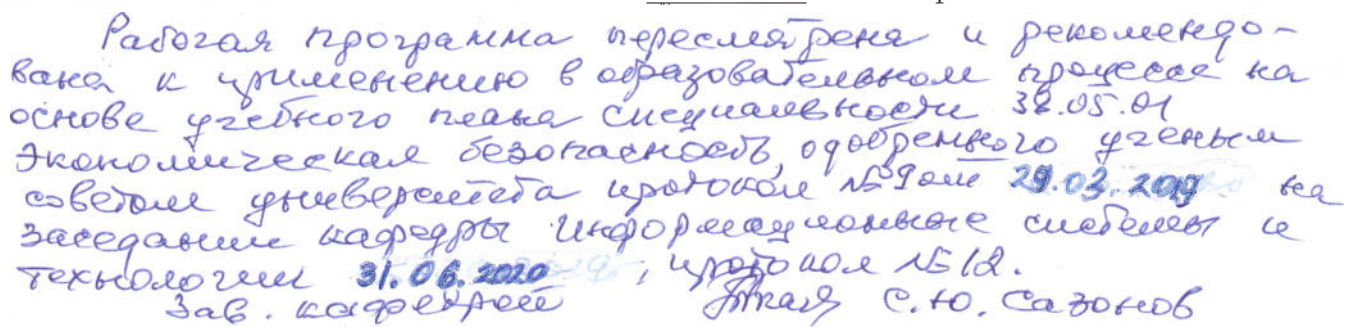 Рабочая программа пересмотрена и рекомендо-
вана к применению в образовательном процессе на
основе учебного плана специальности 38.05.01
Экономическая безопасность, одобренного ученым
советом университета протокол №9 от 29.03.2019 на
заседании кафедры Информационные системы и
технологии 31.06.2020, протокол №12.
Зав. кафедрой С.Ю. Сазонов